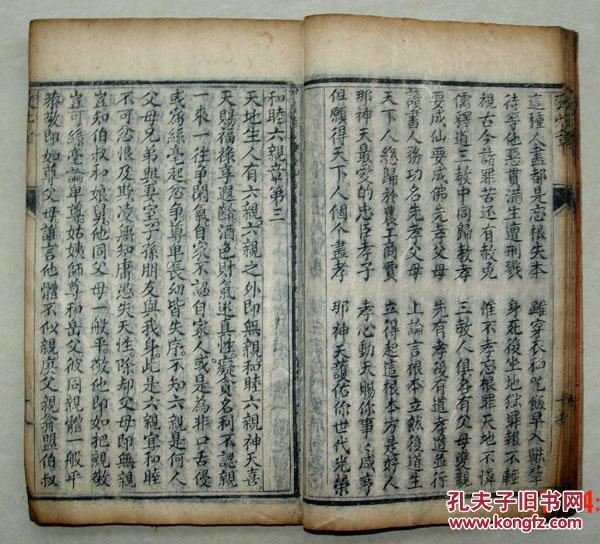 這種人盡都是忘根失本　雖穿衣和吃飯早入獸羣
待等他惡貫滿生遭刑戮　身死後坐地獄罪報不輕
視古今諸罪苦還有赦免　惟不孝忘根罪天地不憐
儒釋道三教中同歸教孝　三教人俱身有父母雙親
要成仙要成佛先孝父母　先有孝後有道孝道並行
讀書人務功名先孝父母　上論言根本立然後道生
天下人總歸於農工商賈　立得起這根本方是好人
那神天最愛的忠臣孝子　孝心動天賜你事之咸亨
但願得天下人個個盡孝　那神天護佑你世代光榮
和睦六親章第三
天地生人有六親六親之外即無親和睦六親神天喜
天賜福祿享遐齡酒色財氣迷真性癡貪名利不認親
一來一往爭閑氣自家不認自家人或是為非口舌侵
或為絲毫起忿爭尊卑長幼皆失序不知六親是何人
父母兄弟與妻室子孫朋友與我身此是六親宜和睦
不可忿恨及欺凌無知庸愚失天性除却父母即無親
豈知伯叔和娘舅他同父母一般平敬他即如把親敬
豈可絲毫論卑尊姑姨師尊和岳父彼同親體一般平
恭敬即如尊父母誰言他體不似親庶父親翁盟伯叔
孔夫子旧书网
www.kongfz.com